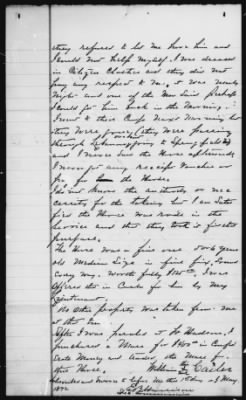 they refused to let me have him and
I could not help myself. I was dressed
in Citizens Clothes and they did not
pay any respect to me, it was nearly
Night and one of the Men said perhaps
I could get him back in the Morning.
I went to their Camp next Morning but
they were gone, they were passing
through to Springfield
and I never saw the Horse afterwards
I never got any receipt Voucher or
for the Horse.
I do not know the authority or ne-
cessity for the taking but I am Satis-
fied the Horse was needed in the
Service and that they took it for that
purpose.
The Horse was a fine one 5 or 6 years
old Medium Size in fine fix, Sound
every way. Worth fully $150. I was
offered that in Cash for him by My
No other property was taken from me
at that time
After I was paroled at Ft Hudson, I
purchased a Mule for $1400 in Confed-
erate Money and the Mule for
that Horse.
William Carter
Subscribed and sworn to before me this 1st day of May
1872